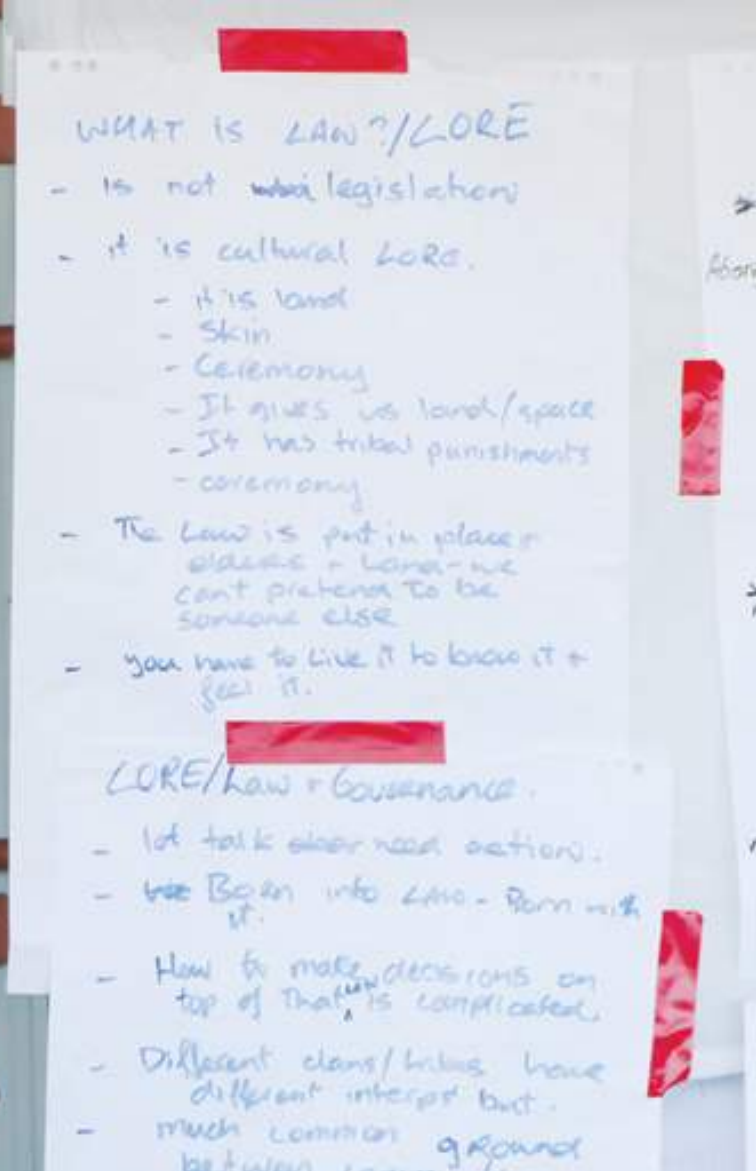 WHAT IS LAW?/LORE
- is not legislation
- it is cultural LORE.
- it is land
- Skin
- Ceremony
- It gives us land/space
- It has tribal punishments
- ceremony
- The Law is put in place +
+ Land - we
cant pretend to be
someone else
- you have to Live it to know it +
feel it.
LORE/Law + Governance.
- lot talk need action.
- Born into LAW - Born with
it.
- How to make decisions on
top of That law is complicated.
- Different clans/tribes have
different interps but.
- much common ground
between